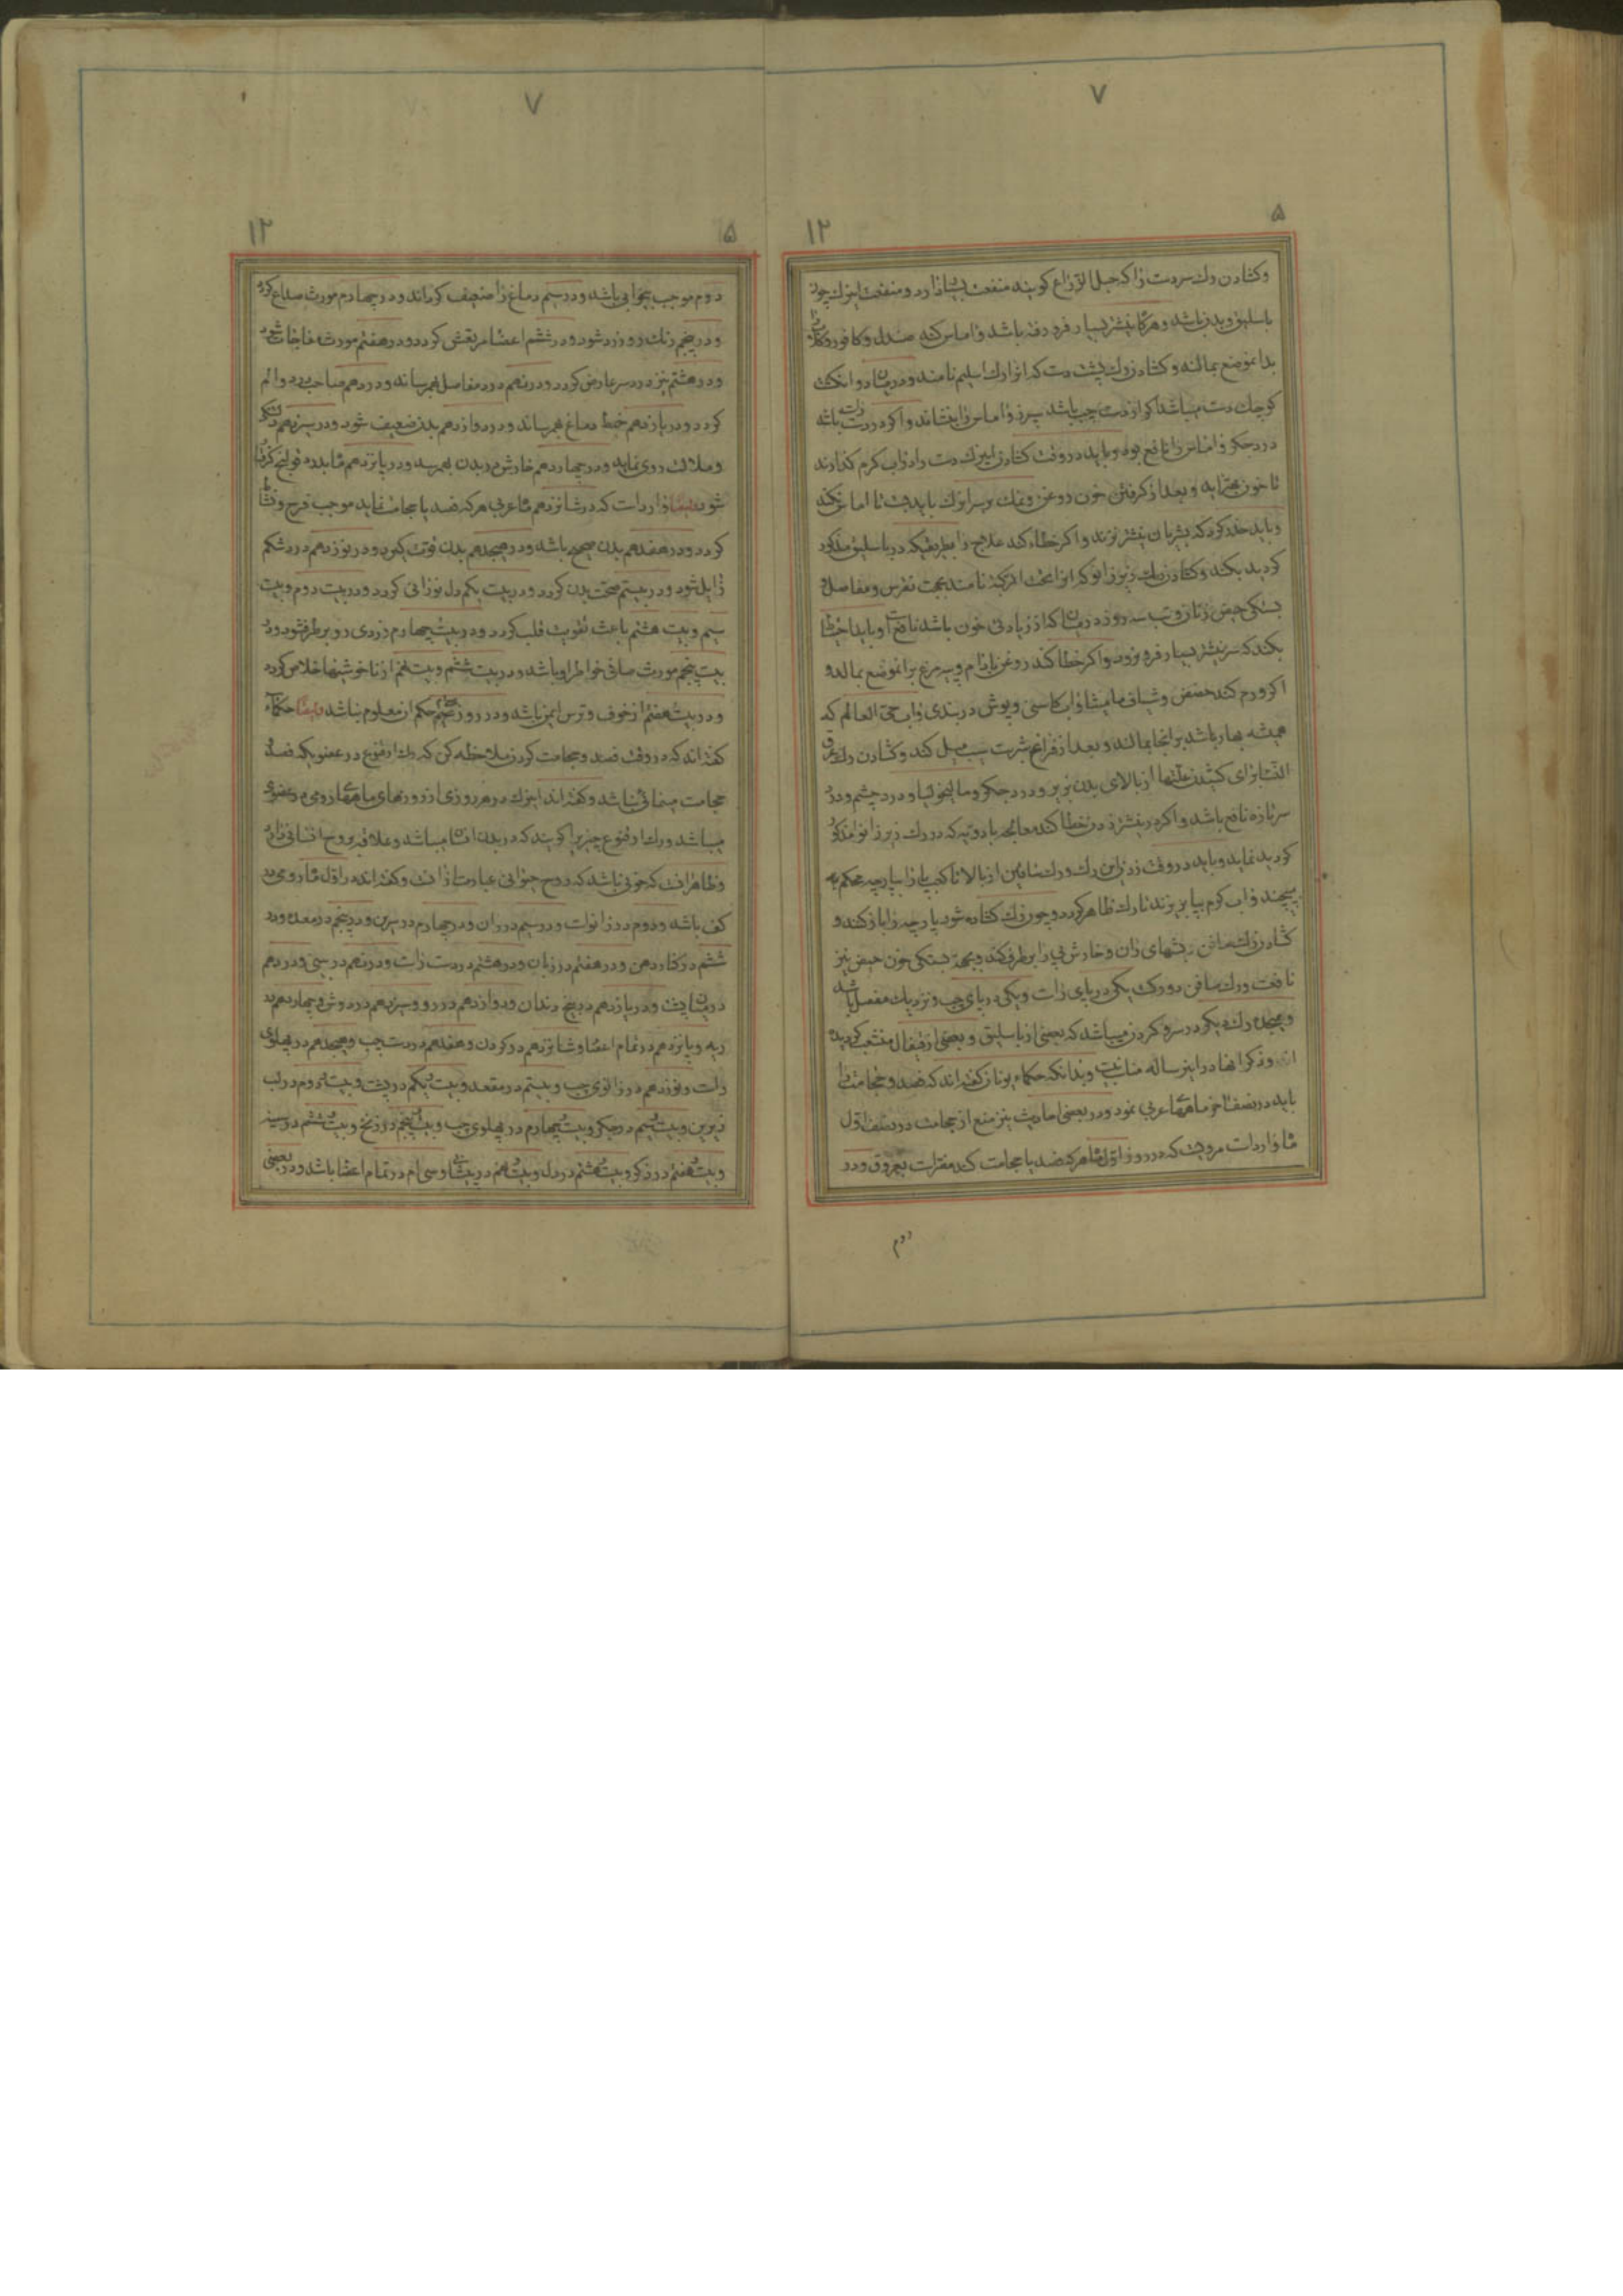 ۷
۵
۱۲
وکشادن رك سردست را که حبل الذراع کویند منفعت بسیار دارد و منفعت این رك چون
باسلیق بدن باشد و هرکاه نیشتر بسیار فرو رفته باشد و اماس کند صندل و کافور و کلاب
بدانموضع بمالند و کشادن رك پشت دست که انرا رك اسلیم نامند و در میان دو انکشت
کوچك دست میباشد اکر از دست چپ باشد سپرز و اماس را بنشاند و اکر در دست راست باشد
درد جکر و اماس را نافع بود و باید در وقت کشادن این رك دست را در اب کرم کذارند
تا خون بیرون اید و بعد از کرفتن خون روغن و نمك بر سر این رك باید بست تا اماس نکند
و باید حذر کرد که بشریان نیشتر نزند و اکر خطاء کند علاج را بطریقیکه در باسلیق مذکور
کردید بکند و کشادن رك زیر زانو که انرا تحت الرکبة نامند بجهت نقرس و مفاصل و
بستکی حیض زنان و تب سه روزه در میان که از زیادتی خون باشد نافع است و باید احتیاط
بکند که سر نیشتر بسیار فرو نرود و اکر خطا کند روغن بادام و پیه مرغ بر انموضع بمالد و
اکر ورم کند حضض و شیاف مامیثا و اب کاسنی و پوش دربندی و اب حی العالم که
همیشه بهار باشد بر انجا بمالند و بعد از فراغ شربت سیب میل کند و کشادن رك عرق
النسا برای کشیدن علتها از بالای بدن بزیر و درد جکر و مالیخولیا و درد چشم و درد
سر تازه نافع باشد و اکر در نیشتر زدن خطا کند معالجه بادویه که در رك زیر زانو مذکور
کردید نماید و باید در وقت زدن این رك و رك صافن از بالا تا کعب پا را بپارچه محکم به
پیچند و اب کرم بپا بریزند تا رك ظاهر کردد و چون رك کشاده شود پارچه را باز کنند و
کشادن رك صافن ریشهای ران و خارش را برطرف کند و بجهة بستکی خون حیض نیز
نافعست و رك صافن دو رك یکی در پای راست و یکی در پای چپ و نزدیك مفصل باشد
و هیجده رك دیکر در سر و کردن میباشد که بعضی از باسلیق و بعضی از قیفال منشعب کردیده
اند و ذکر انها در این رساله مناسب نیست و بدانکه حکماء یونان کفته اند که فصد و حجامت را
باید در نصف اخر ماههای عربی نمود و در بعضی احادیث نیز منع از حجامت در نصف اول
ماه وارد است مرویست که در روز اول ماه هرکه فصد یا حجامت کند مضر است بعروق و در
دوم
۷
۵
۱۲
دوم موجب بیخوابی باشد و در سیم دماغ را ضعیف کرداند و در چهارم مورث صداع کردد
و در پنجم رنك رو زرد شود و در ششم اعضا مرتعش کردد و در هفتم مورث مفاجات شود
و در هشتم نیز درد سر عارض کردد و در نهم درد مفاصل بهم رساند و در دهم صاحب درد و الم
کردد و در یازدهم خبط دماغ بهم رساند و در دوازدهم بدن ضعیف شود و در سیزدهم
و ملالت روی نماید و در چهاردهم خارش در بدن بهم رسد و در پانزدهم قولنج
شود ایضا وارد است که در شانزدهم ماه عربی هرکه فصد یا حجامت نماید موجب فرح و نشاط
کردد و در هفدهم بدن صحیح باشد و در هیجدهم بدن قوت کیرد و در نوزدهم درد شکم
زایل شود و در بیستم صحت بدن کردد و در بیست یکم دل نورانی کردد و در بیست دوم و بیست
سیم و بیست هشتم باعث تقویت قلب کردد و در بیست چهارم زردی رو برطرف شود و در
بیست پنجم مورث صافی خواطر او باشد و در بیست ششم و بیست نهم از ناخوشیها خلاص کردد
و در بیست هفتم از خوف و ترس ایمن باشد و در روز حکم ان معلوم نباشد و ایضا حکماء
کفته اند که در وقت فصد و حجامت کردن ملاحظه کن که رك ارقنوع در عضویکه فصد و
حجامت مینمائی نباشد و کفته اند این رك در هر روزی از روزهای ماههای رومی در عضوی
میباشد و رك ارقنوع چیزیرا کویند که در بدن انسان میباشد و علاقه بروح انسانی دارد
و ظاهر انست که خونی باشد که روح حیوانی عبارت از انست و کفته اند در اول ماه رومی در
کف باشد و دوم در زانو است و در سیم در ران و در چهارم در سرین و در پنجم در معده و در
ششم در کنار دهن و در هفتم در زبان و در هشتم در دست راست و در نهم در بینی و در دهم
در پستانست و در یازدهم در بیخ دندان و دوازدهم در رو و سیزدهم در دوش و چهاردهم در
ریه و پانزدهم در تمام اعضا و شانزدهم در کردن و هفدهم در دست چپ و هیجدهم در پهلوی
راست و نوزدهم در زانوی چپ و بیستم در مقعد و بیست یکم در پشت و بیست دوم در لب
زیرین و بیست سیم در جکر و بیست چهارم در پهلوی چپ و بیست پنجم در زنخ و بیست ششم در سینه
و بیست هفتم در ذکر و بیست هشتم در دل و بیست نهم در پیشانی و سی ام در تمام اعضا باشد و در بعضی